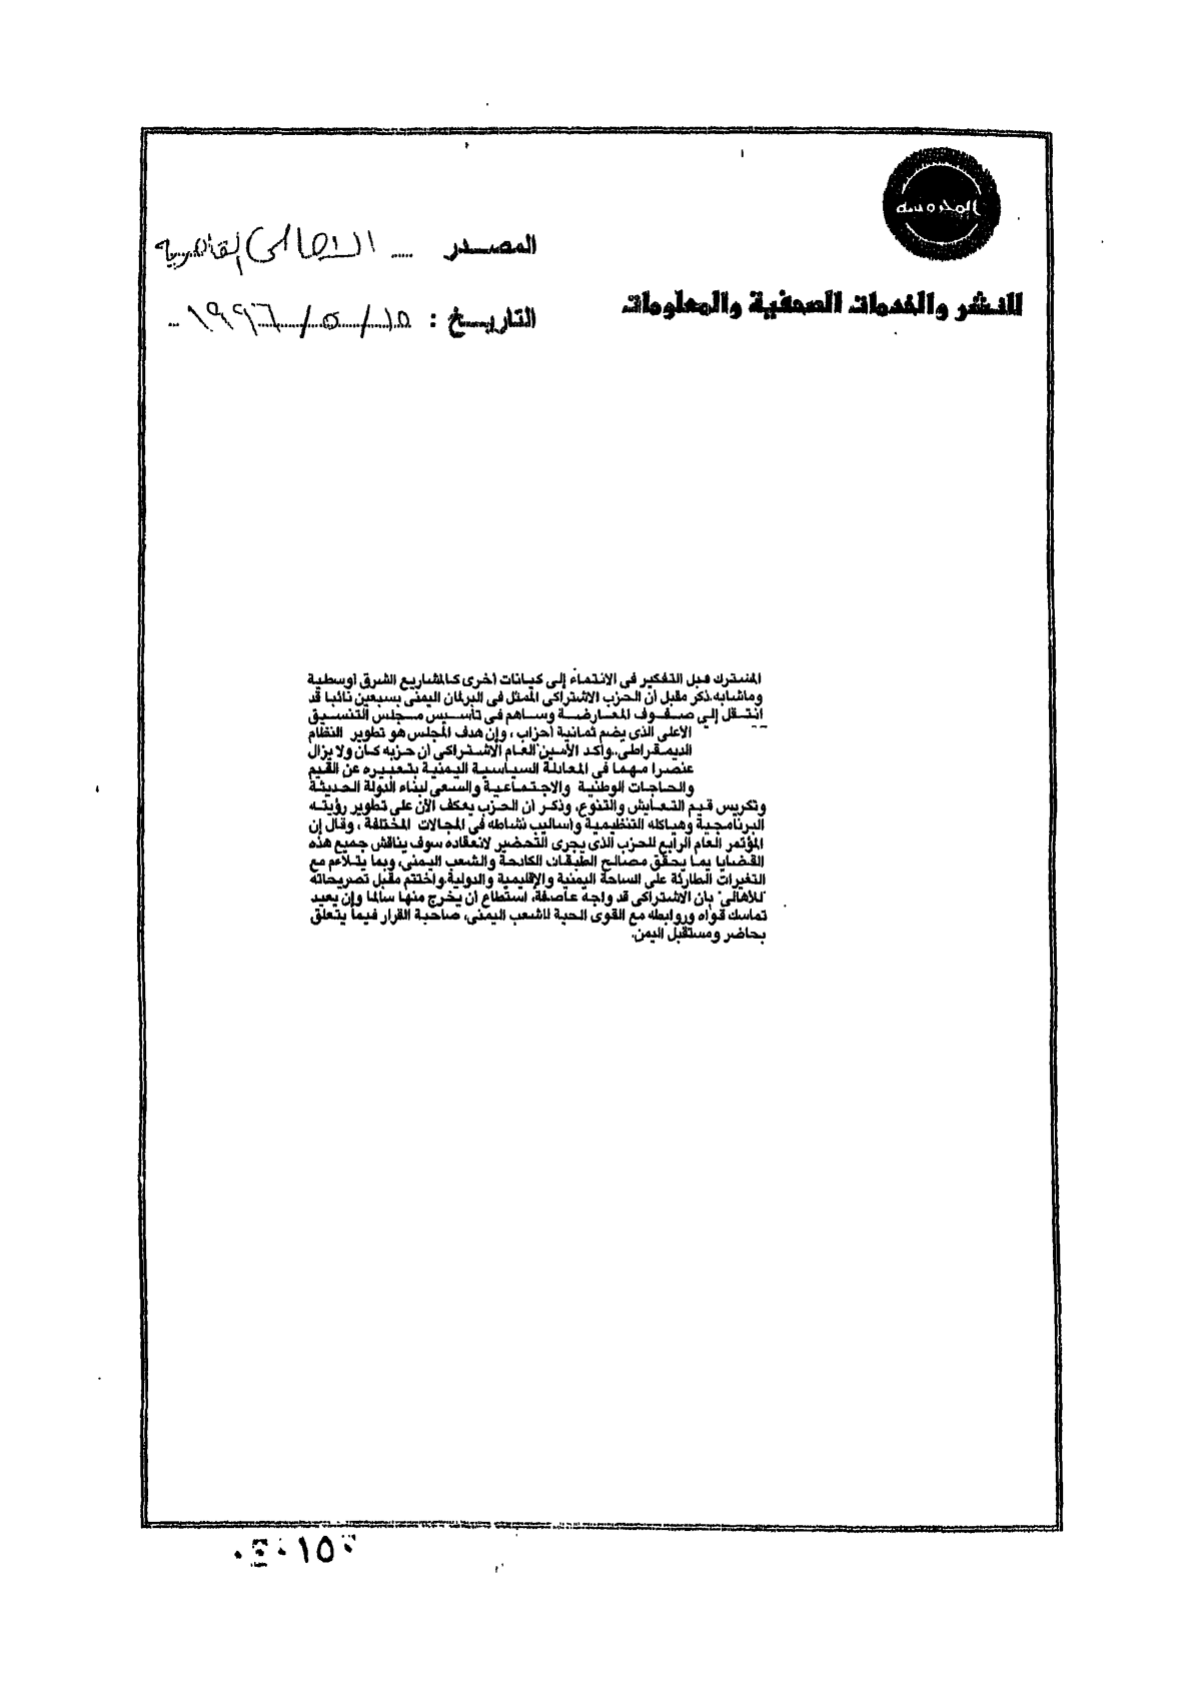 المحروسة
المصدر .... الاهالى القاهرية
للنشر والخدمات الصحفية والمعلومات
التاريخ : ١٥ / ٥ / ١٩٩٦
المشترك قبل التفكير فى الانتماء إلى كيانات أخرى كالمشاريع الشرق أوسطية
وماشابه.ذكر مقبل أن الحزب الاشتراكى الممثل فى البرلمان اليمنى بسبعين نائبا قد
انتقل إلى صفوف المعارضة وساهم فى تأسيس مجلس التنسيق
الأعلى الذى يضم ثمانية أحزاب ، وإن هدف المجلس هو تطوير النظام
الديمقراطى..وأكد الأمين العام الاشتراكى أن حزبه كان ولا يزال
عنصرا مهما فى المعادلة السياسية اليمنية بتعبيره عن القيم
والحاجات الوطنية والاجتماعية والسعى لبناء الدولة الحديثة
وتكريس قيم التعايش والتنوع، وذكر أن الحزب يعكف الآن على تطوير رؤيته
البرنامجية وهياكله التنظيمية وأساليب نشاطه فى المجالات المختلفة ، وقال إن
المؤتمر العام الرابع للحزب الذى يجرى التحضير لانعقاده سوف يناقش جميع هذه
القضايا بما يحقق مصالح الطبقات الكادحة والشعب اليمنى، وبما يتلاءم مع
التغيرات الطارئة على الساحة اليمنية والإقليمية والدولية.واختتم مقبل تصريحاته
"للأهالى" بان الاشتراكى قد واجه عاصفة، استطاع أن يخرج منها سالما وإن يعيد
تماسك قواه وروابطه مع القوى الحية للشعب اليمنى، صاحبة القرار فيما يتعلق
بحاضر ومستقبل اليمن.